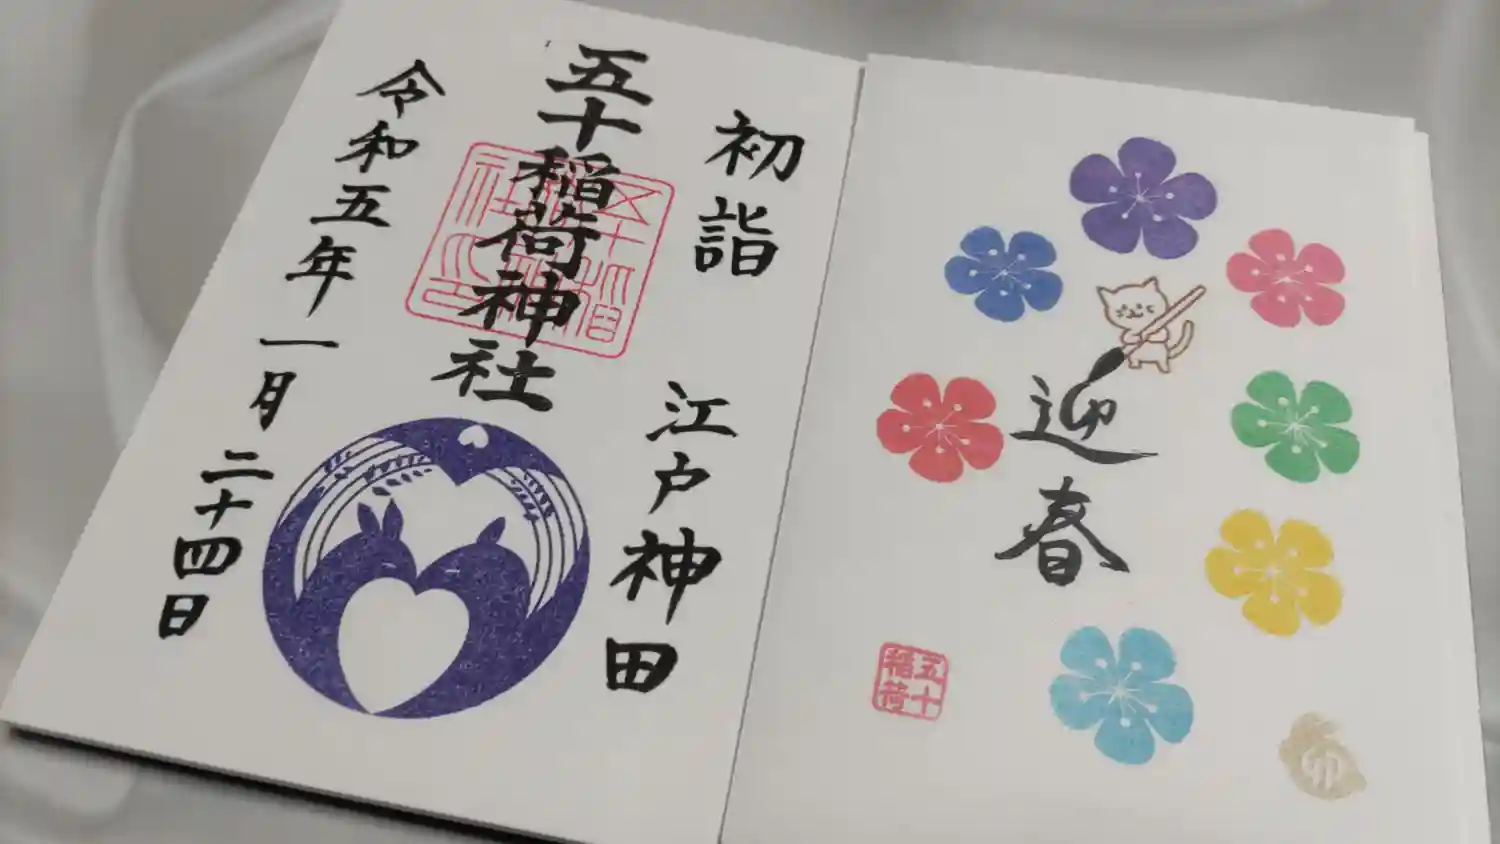 迎春
五十
稲荷
卯
初詣
江戸神田
五十稲荷神社
令和五年一月二十四日